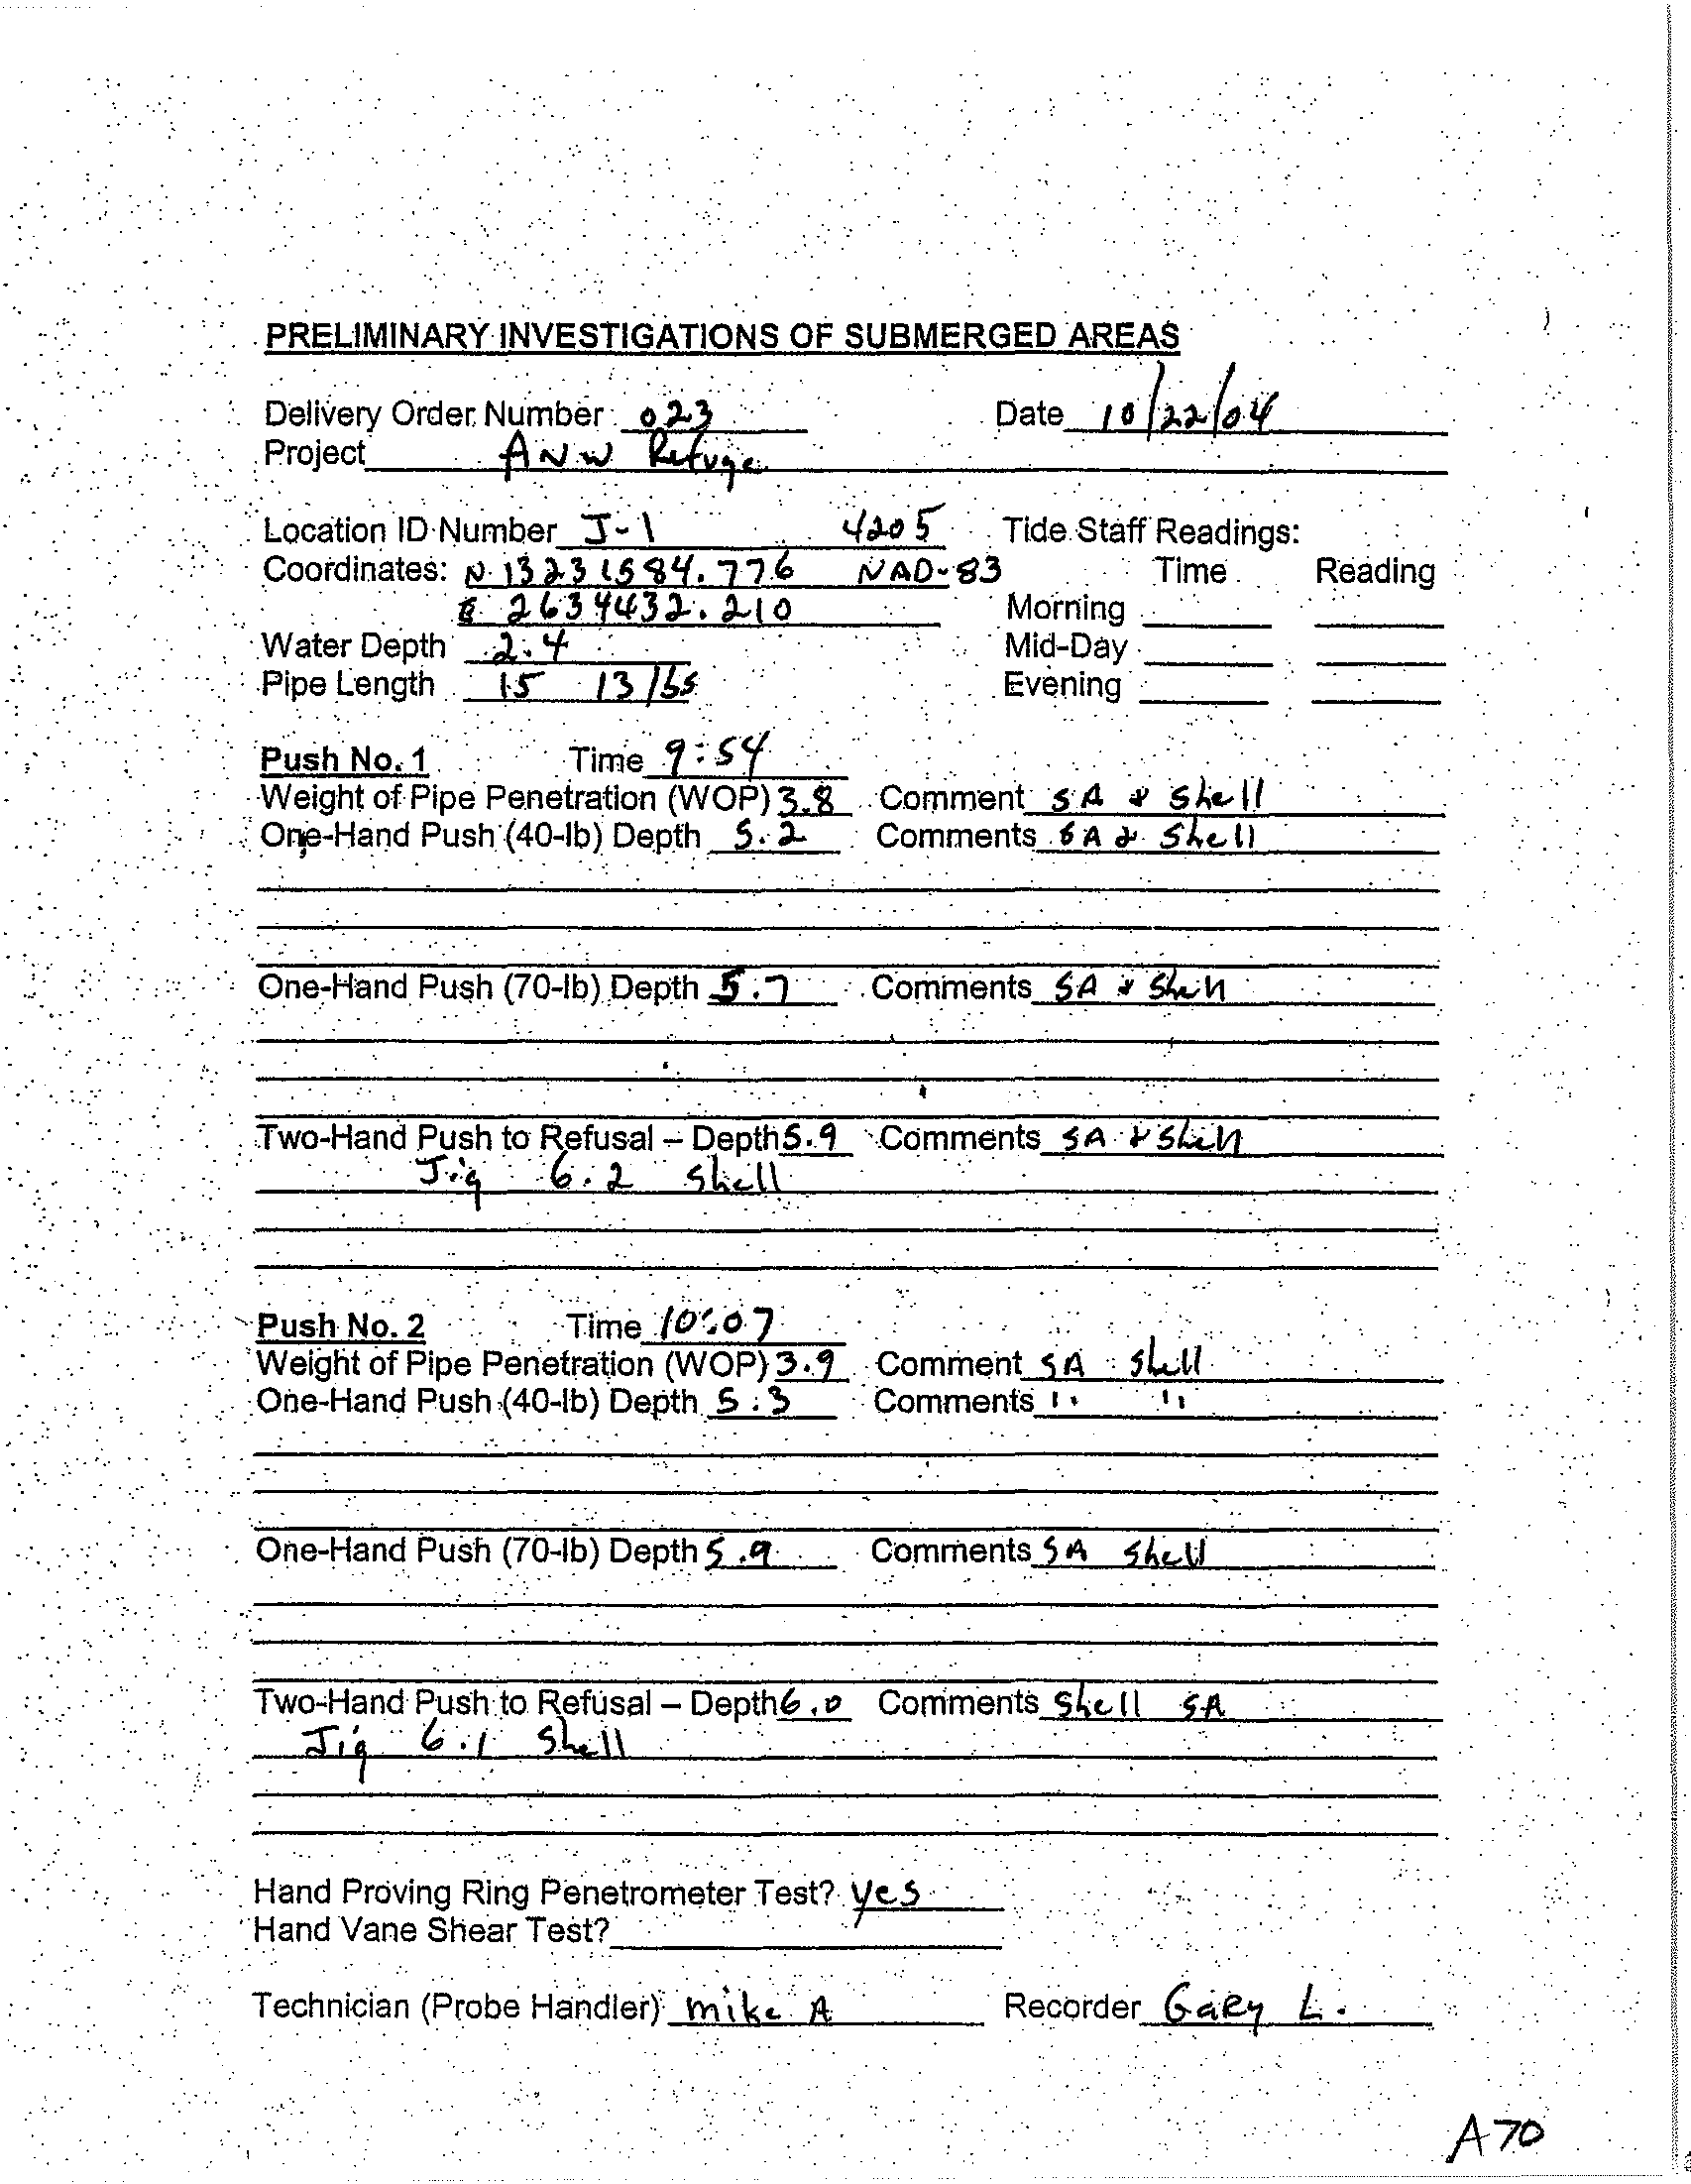 PRELIMINARY INVESTIGATIONS OF SUBMERGED AREAS
Delivery Order Number 023 Date 10/22/04
Project ANW Refuge
Location ID Number J-1 4205 Tide Staff Readings:
Coordinates: N 13231584.776 NAD-83 Time Reading
E 2634432.210 Morning
Water Depth 2.4 Mid-Day
Pipe Length 15 13 lbs Evening
Push No. 1 Time 9:54
Weight of Pipe Penetration (WOP) 3.8 Comment SA & Shell
One-Hand Push (40-lb) Depth 5.2 Comments SA & Shell
One-Hand Push (70-lb) Depth 5.7 Comments SA & Shell
Two-Hand Push to Refusal – Depth 5.9 Comments SA & Shell
Jig 6.2 Shell
Push No. 2 Time 10:07
Weight of Pipe Penetration (WOP) 3.9 Comment SA Shell
One-Hand Push (40-lb) Depth 5.3 Comments " "
One-Hand Push (70-lb) Depth 5.9 Comments SA Shell
Two-Hand Push to Refusal – Depth 6.0 Comments Shell SA
Jig 6.1 Shell
Hand Proving Ring Penetrometer Test? yes
Hand Vane Shear Test?
Technician (Probe Handler) Mike A Recorder Gary L.
A70